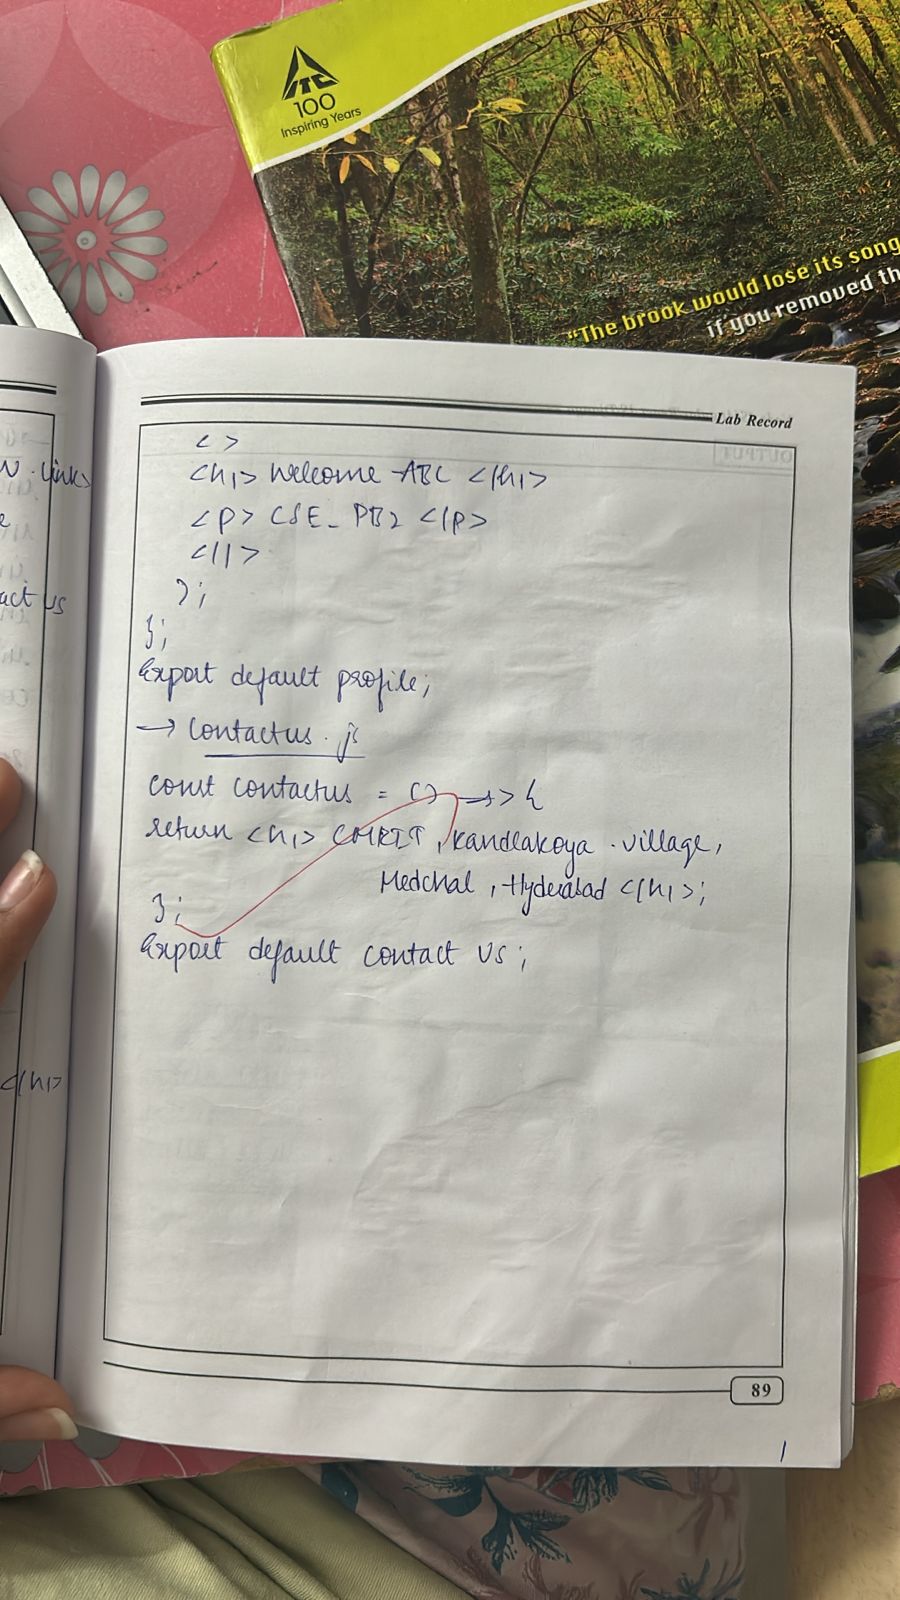 ITC
100
Inspiring Years
"The brook would lose its song
if you removed th
Lab Record
< >
<h1> Welcome ABC </h1>
<p> CSE_ PB2 </p>
</>
);
};
Export default profile;
→ Contactus.js
const contactus = () → > {
return <h1> CMRIT, Kandlakoya village,
Medchal, Hyderabad </h1>;
};
Export default contact us;
89
Link>
act us
</h1>
OUTPUT